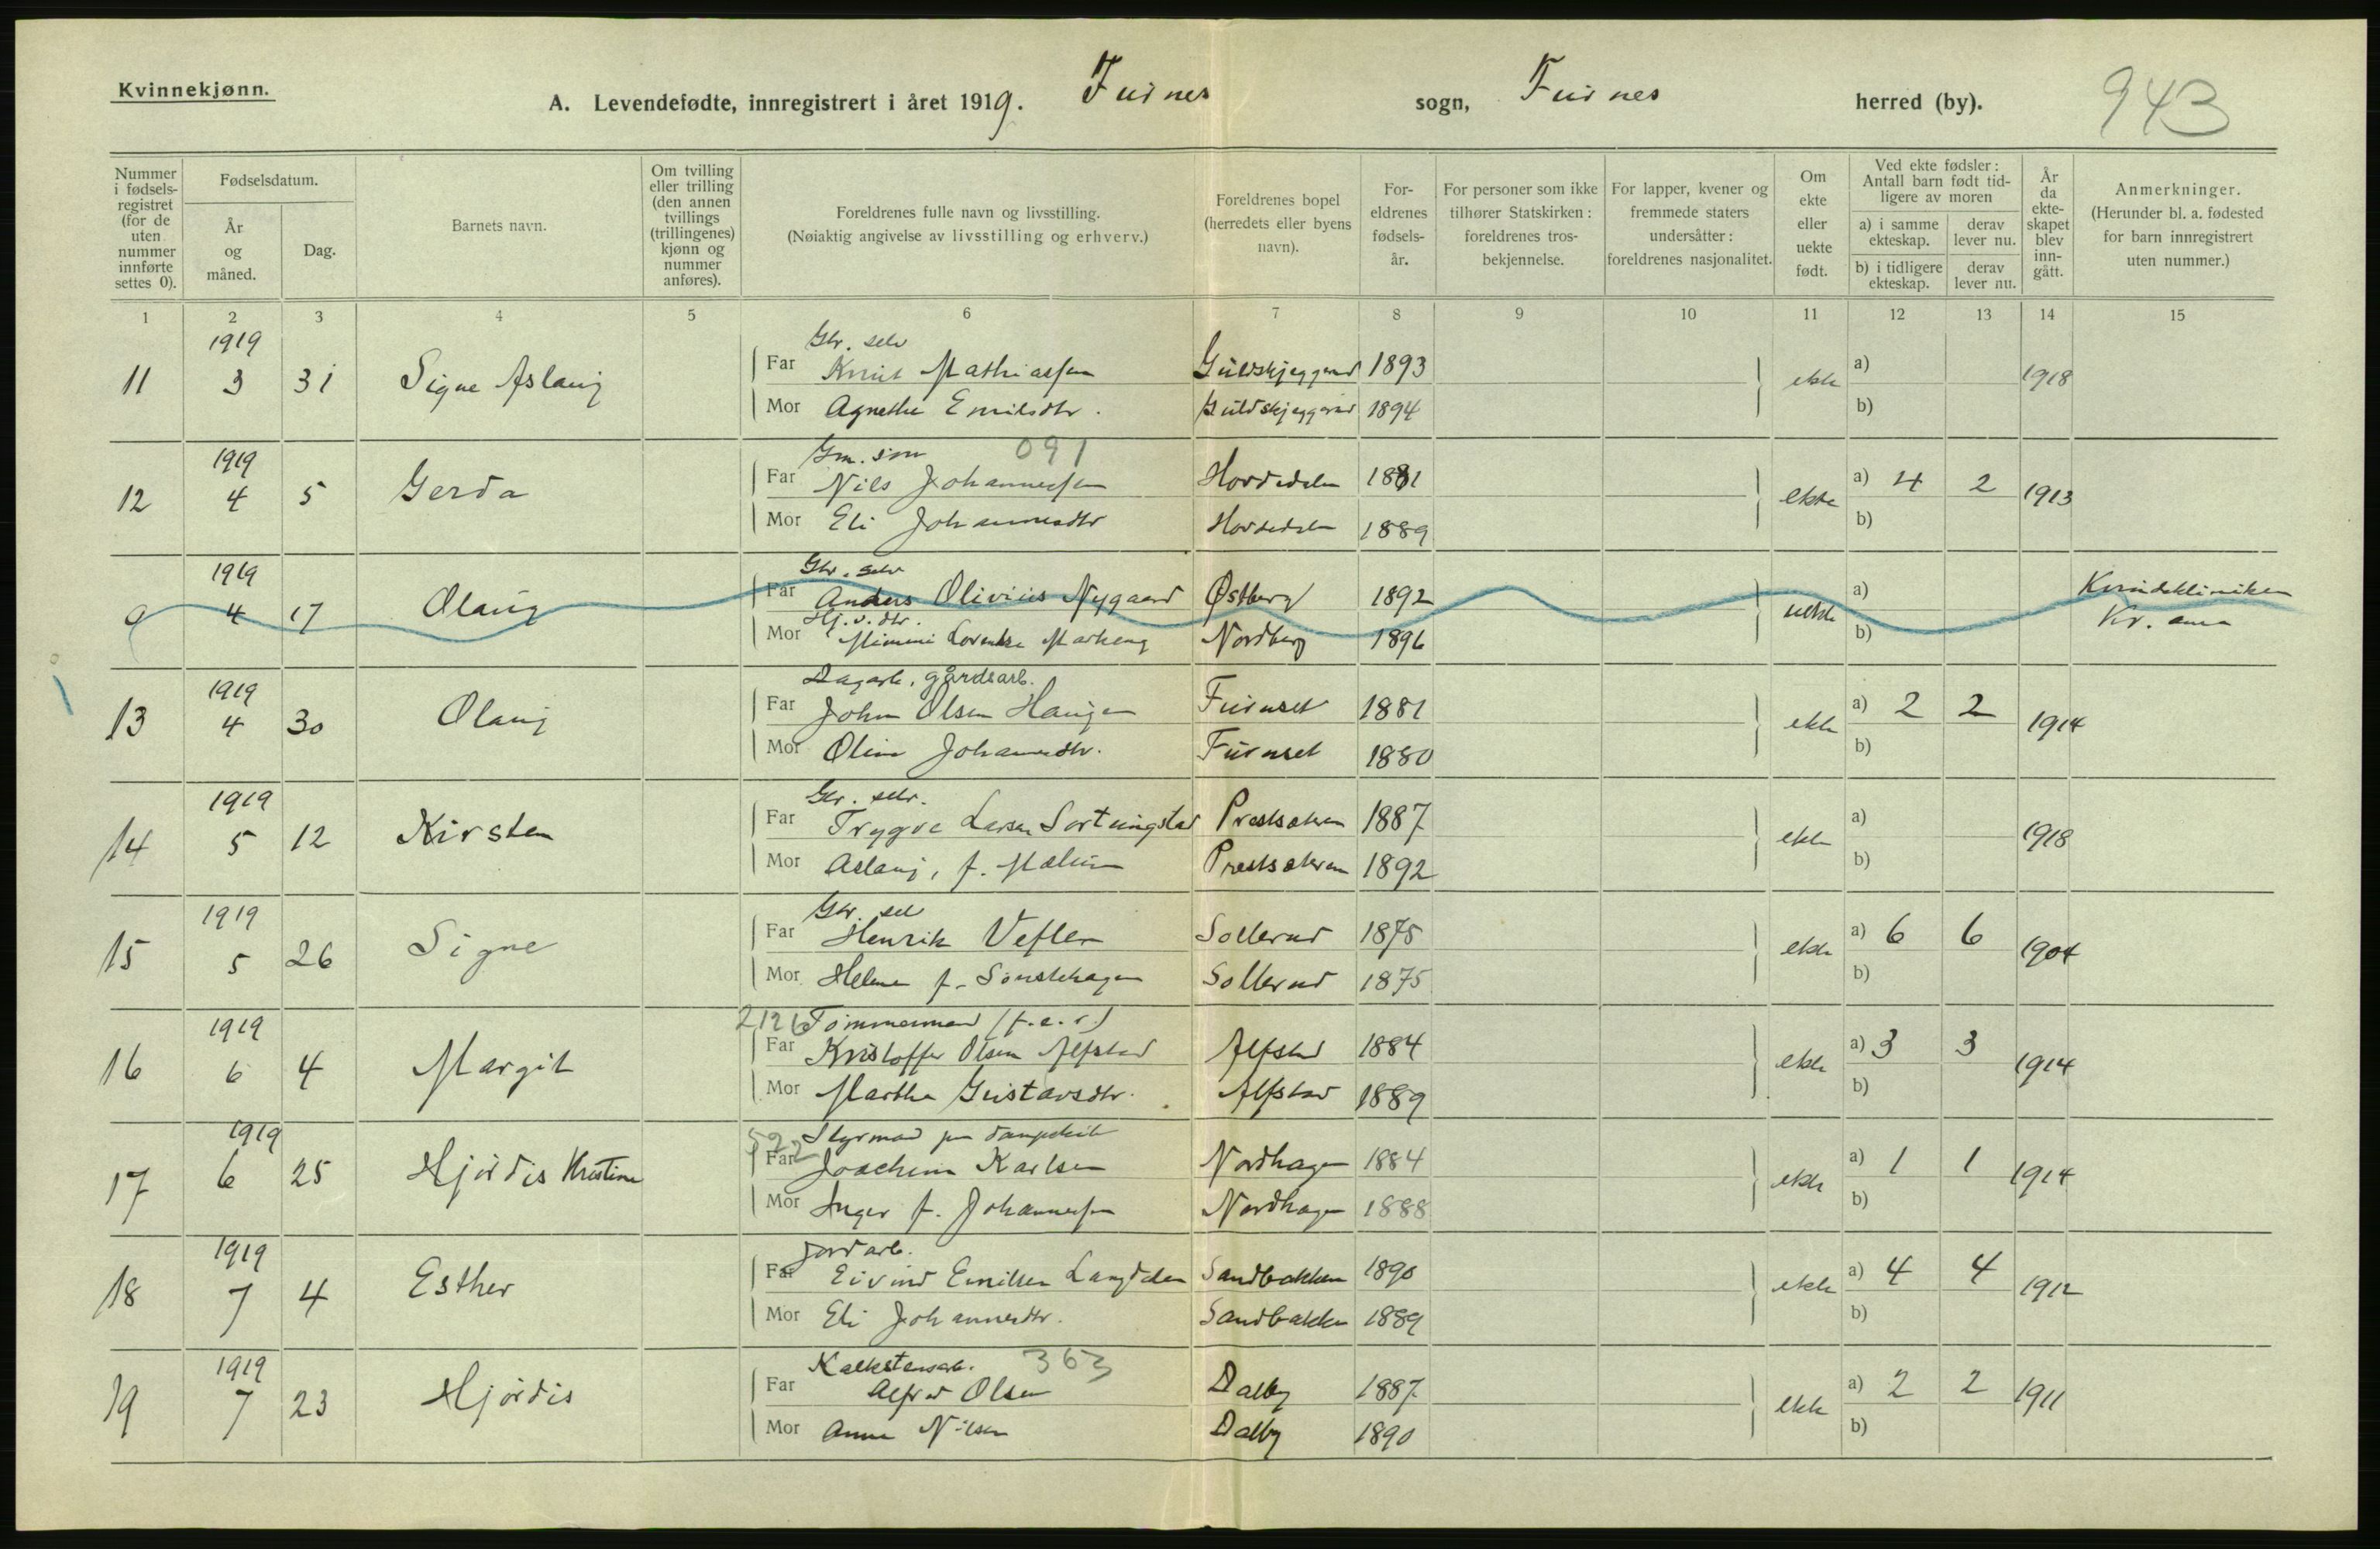 Kvinnekjønn.
A. Levendefødte, innregistrert i året 1919. Furnes sogn, Furnes herred (by). 943
Nummer i fødsels-registret (for de uten nummer innførte settes 0).
Fødselsdatum.
År og måned.
Dag.
Barnets navn.
Om tvilling eller trilling (den annen tvillings (trillingenes) kjønn og nummer anføres).
Foreldrenes fulle navn og livsstilling.
(Nøiaktig angivelse av livsstilling og erhverv.)
Foreldrenes bopel (herredets eller byens navn).
For-eldrenes fødsels-år.
For personer som ikke tilhører Statskirken: foreldrenes tros-bekjennelse.
For lapper, kvener og fremmede staters undersåtter: foreldrenes nasjonalitet.
Om ekte eller uekte født.
Ved ekte fødsler: Antall barn født tid-ligere av moren
a) i samme ekteskap.
derav lever nu.
b) i tidligere ekteskap.
derav lever nu.
År da ekte-skapet blev inn-gått.
Anmerkninger.
(Herunder bl. a. fødested for barn innregistrert uten nummer.)
1 2 3 4 5 6 7 8 9 10 11 12 13 14 15
1919
Gbr. selv
11 3 31 Signe Aslaug Far Knut Mathiassen Guldskjeggerud 1893 ekte a) 1918
Mor Agnethe Emilsdtr. Guldskjeggerud 1894 b)
1919
Gm. søn 091
12 4 5 Gerda Far Nils Johannessen Hordedalen 1881 ekte a) 4 2 1913
Mor Eli Johannesdtr Hordedalen 1889 b)
1919
Gbr. selv
0 4 17 Olaug Far Anders Olivius Nygaard Østberg 1892 uekte a) Kvindekliniken
Hj. v. dtr.
Mor Mimmi Lovise Markeng Nordberg 1896 b) Kr. ania
1919
Dagarb. gårdsarb.
13 4 30 Olaug Far John Olsen Haugen Furuset 1881 ekte a) 2 2 1914
Mor Oline Johannesdtr. Furuset 1880 b)
1919
Gbr. selv.
14 5 12 Kirsten Far Trygve Larsen Sortungstad Prestsækren 1887 ekte a) 1918
Mor Aslaug, f. Mælum Prestsækren 1892 b)
1919
Gbr. sel
15 5 26 Signe Far Henrik Veflen Sollerud 1875 ekte a) 6 6 1904
Mor Helene f. Sønstehagen Sollerud 1875 b)
1919
2126 Tømmermand (f.e.r.)
16 6 4 Margit Far Kristoffer Olsen Alfstad Alfstad 1884 ekte a) 3 3 1914
Mor Marthe Gustavsdtr. Alfstad 1889 b)
1919
522 Styrmand paa dampskib
17 6 25 Hjørdis Kristine Far Joachim Karlsen Nordhagen 1884 ekte a) 1 1 1914
Mor Inger f. Johannessen Nordhagen 1888 b)
1919
Jordarb.
18 7 4 Esther Far Eivind Emilsen Langdalen Sandbakken 1890 ekte a) 4 4 1912
Mor Eli Johannesdtr. Sandbakken 1889 b)
1919
Kalkstensarb. 363
19 7 23 Hjørdis Far Alfred Olsen Dalby 1887 ekte a) 2 2 1911
Mor Anna Nilsen Dalby 1890 b)